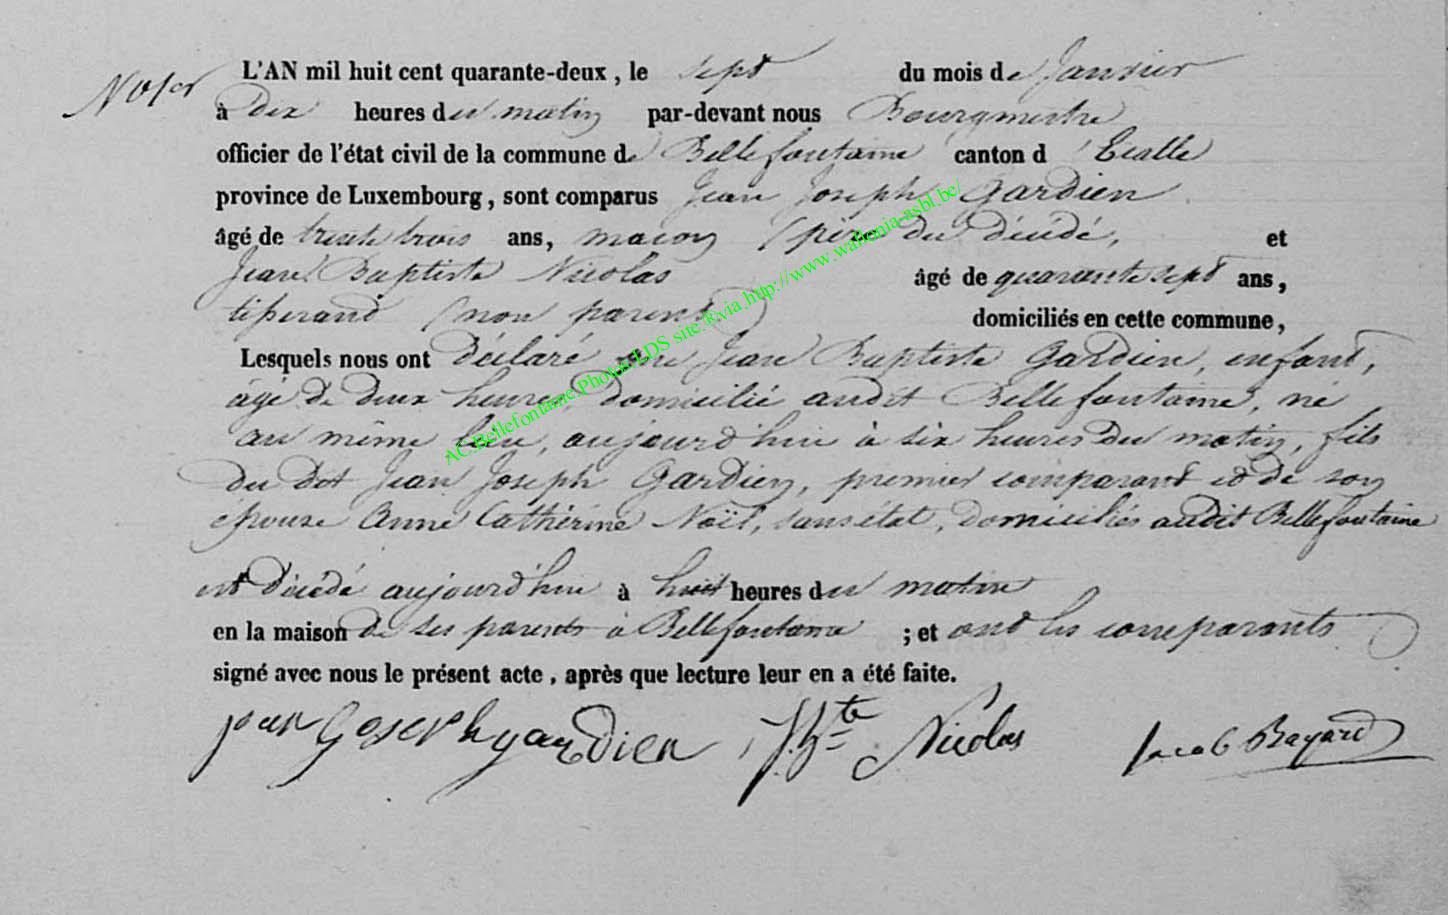 L'AN mil huit cent quarante-deux, le sept du mois de Janvier
No 1er
à dix heures du matin par-devant nous Bourgmestre
officier de l'état civil de la commune de Bellefontaine canton d'Etalle
province de Luxembourg, sont comparus Jean Joseph Gardien
âgé de trente trois ans, maçon (père du décédé, et
Jean Baptiste Nicolas âgé de quarante sept ans,
tisserand (non parent) domiciliés en cette commune,
Lesquels nous ont déclaré que Jean Baptiste Gardien, enfant,
âgé de deux heures, domicilié audit Bellefontaine, né
au même lieu, aujourd'hui à six heures du matin, fils
du dit Jean Joseph Gardien, premier comparant et de son
épouse Anne Cathérine Noël, sans état, domiciliés audit Bellefontaine
est décédé aujourd'hui à huit heures du matin
en la maison de ses parents à Bellefontaine ; et ont les comparants
signé avec nous le présent acte, après que lecture leur en a été faite.
jean Goseph gardien J. Bte Nicolas Jacob Bayard
AC.Bellefontaine.Photos LDS site.fr.via http://www.wallonia-asbl.be/